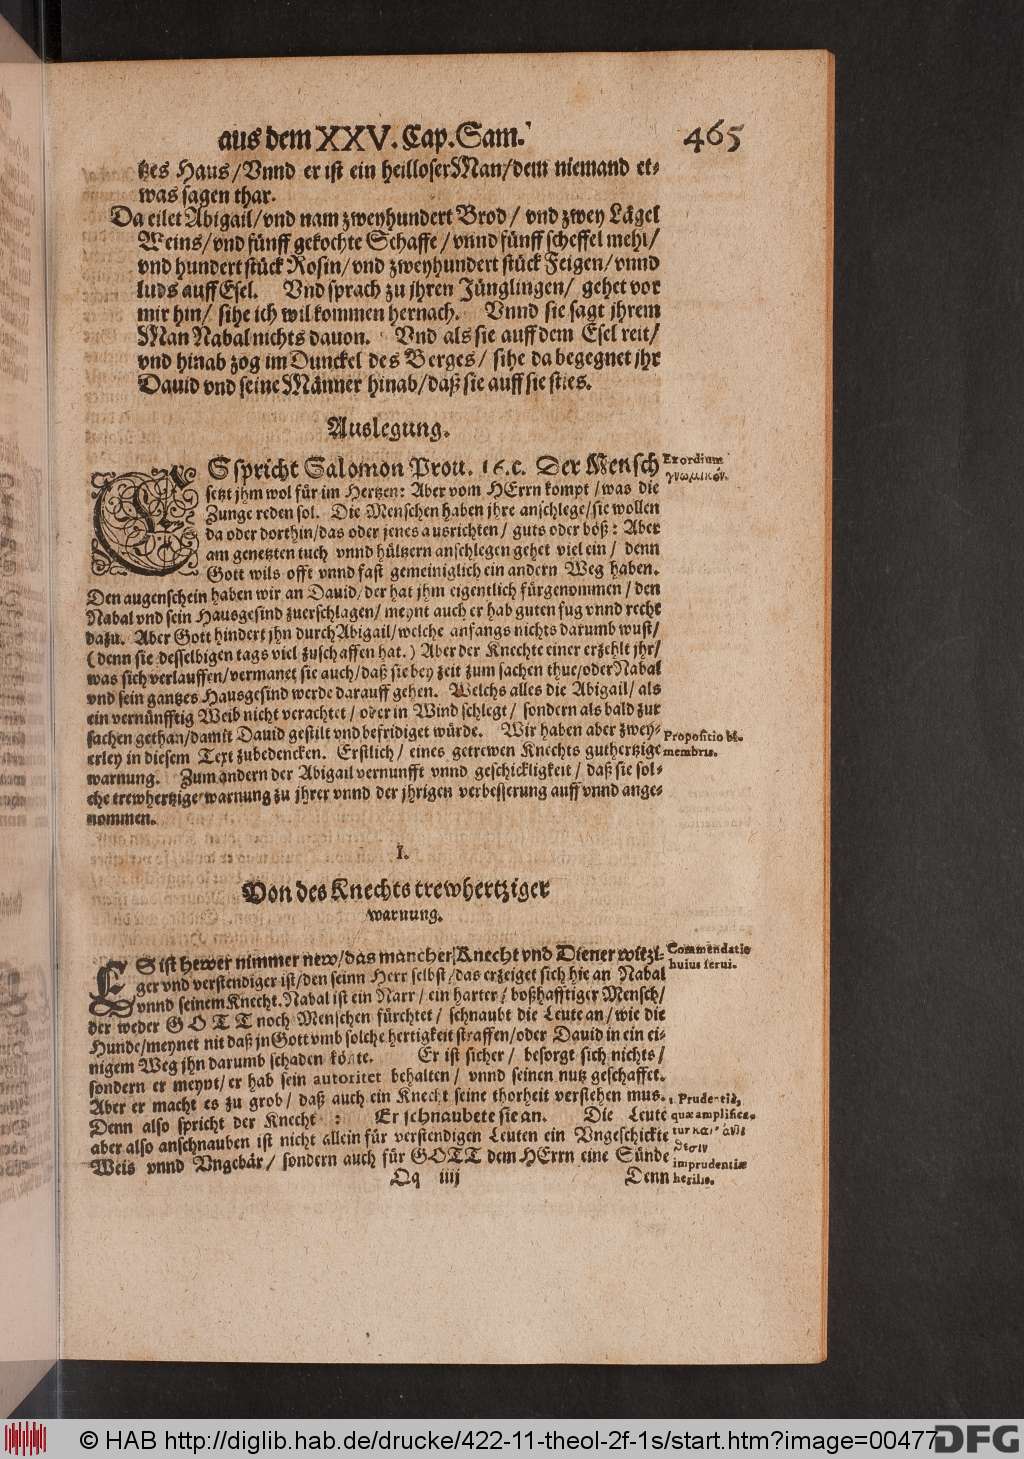 aus dem XXV. Cap. Sam. 465
tzes Haus/ Vnnd er ist ein heilloser Man/ dem niemand et-
was sagen thar.
Da eilet Abigail/ vnd nam zweyhundert Brod/ vnd zwey Lägel
Weins/ vnd fünff gekochte Schaffe/ vnnd fünff scheffel mehl/
vnd hundert stück Rosin/ vnd zweyhundert stück Feigen/ vnnd
luds auff Esel. Vnd sprach zu jhren Jünglingen/ gehet vor
mir hin/ sihe ich wil kommen hernach. Vnnd sie sagt jhrem
Man Nabal nichts dauon. Vnd als sie auff dem Esel reit/
vnd hinab zog im Dunckel des Berges/ sihe da begegnet jhr
Dauid vnd seine Männer hinab/ daß sie auff sie sties.
Auslegung.
ES spricht Salomon Prou. 16. c. Der Mensch
Exordium
γνωμικόν.
setzt jhm wol für im Hertzen: Aber vom HErrn kompt/ was die
Zunge reden sol. Die Menschen haben jhre anschlege/ sie wollen
da oder dorthin/ das oder jenes ausrichten/ guts oder böß: Aber
am genetzten tuch vnnd hültzern anschlegen gehet viel ein/ denn
Gott wils offt vnnd fast gemeiniglich ein andern Weg haben.
Den augenschein haben wir an Dauid/ der hat jhm eigentlich fürgenommen/ den
Nabal vnd sein Hausgesind zuerschlagen/ meynt auch er hab guten fug vnnd recht
dazu. Aber Gott hindert jhn durch Abigail/ welche anfangs nichts darumb wust/
(denn sie desselbigen tags viel zuschaffen hat.) Aber der Knechte einer erzehlt jhr/
was sich verlauffen/ vermanet sie auch/ daß sie bey zeit zum sachen thue/ oder Nabal
vnd sein gantzes Hausgesind werde darauff gehen. Welchs alles die Abigail/ als
ein vernünfftig Weib nicht verachtet/ oder in Wind schlegt/ sondern als bald zur
sachen gethan/ damit Dauid gestilt vnd befridiget würde. Wir haben aber zwey-
Propositio bi-
erley in diesem Text zubedencken. Erstlich/ eines getrewen Knechts guthertzige
membris.
warnung. Zum andern der Abigail vernunfft vnnd geschickligkeit/ daß sie sol-
che trewhertzige warnung zu jhrer vnnd der jhrigen verbesserung auff vnnd ange-
nommen.
I.
Von des Knechts trewhertziger
warnung.
ES ist hewer nimmer new/ das mancher Knecht vnd Diener witzi-
Commendatio
huius serui.
ger vnd verstendiger ist/ den seinn Herr selbst/ das erzeiget sich hie an Nabal
vnnd seinem Knecht. Nabal ist ein Narr/ ein harter/ boßhafftiger Mensch/
der weder GOTT noch Menschen fürchtet/ schnaubt die Leute an/ wie die
Hunde/ meynet nit daß jn Gott vmb solche hertigkeit straffen/ oder Dauid in ein ei-
nigem Weg jhn darumb schaden könte. Er ist sicher/ besorgt sich nichts/
sondern er meynt/ er hab sein autoritet behalten/ vnnd seinen nutz geschaffet.
Aber er macht es zu grob/ daß auch ein Knecht seine thorheit verstehen mus.
1. Prudentia,
Denn also spricht der Knecht: Er schnaubete sie an. Die Leute
quæ amplifica-
aber also anschnauben ist nicht allein für verstendigen Leuten ein Vngeschickte
tur κατ' ἀντί
θεσιν
Weis vnnd Vngebär/ sondern auch für GOTT dem HErrn eine Sünde
imprudentiæ
Qq iiij Denn
herilis.
© HAB http://diglib.hab.de/drucke/422-11-theol-2f-1s/start.htm?image=00477
DFG